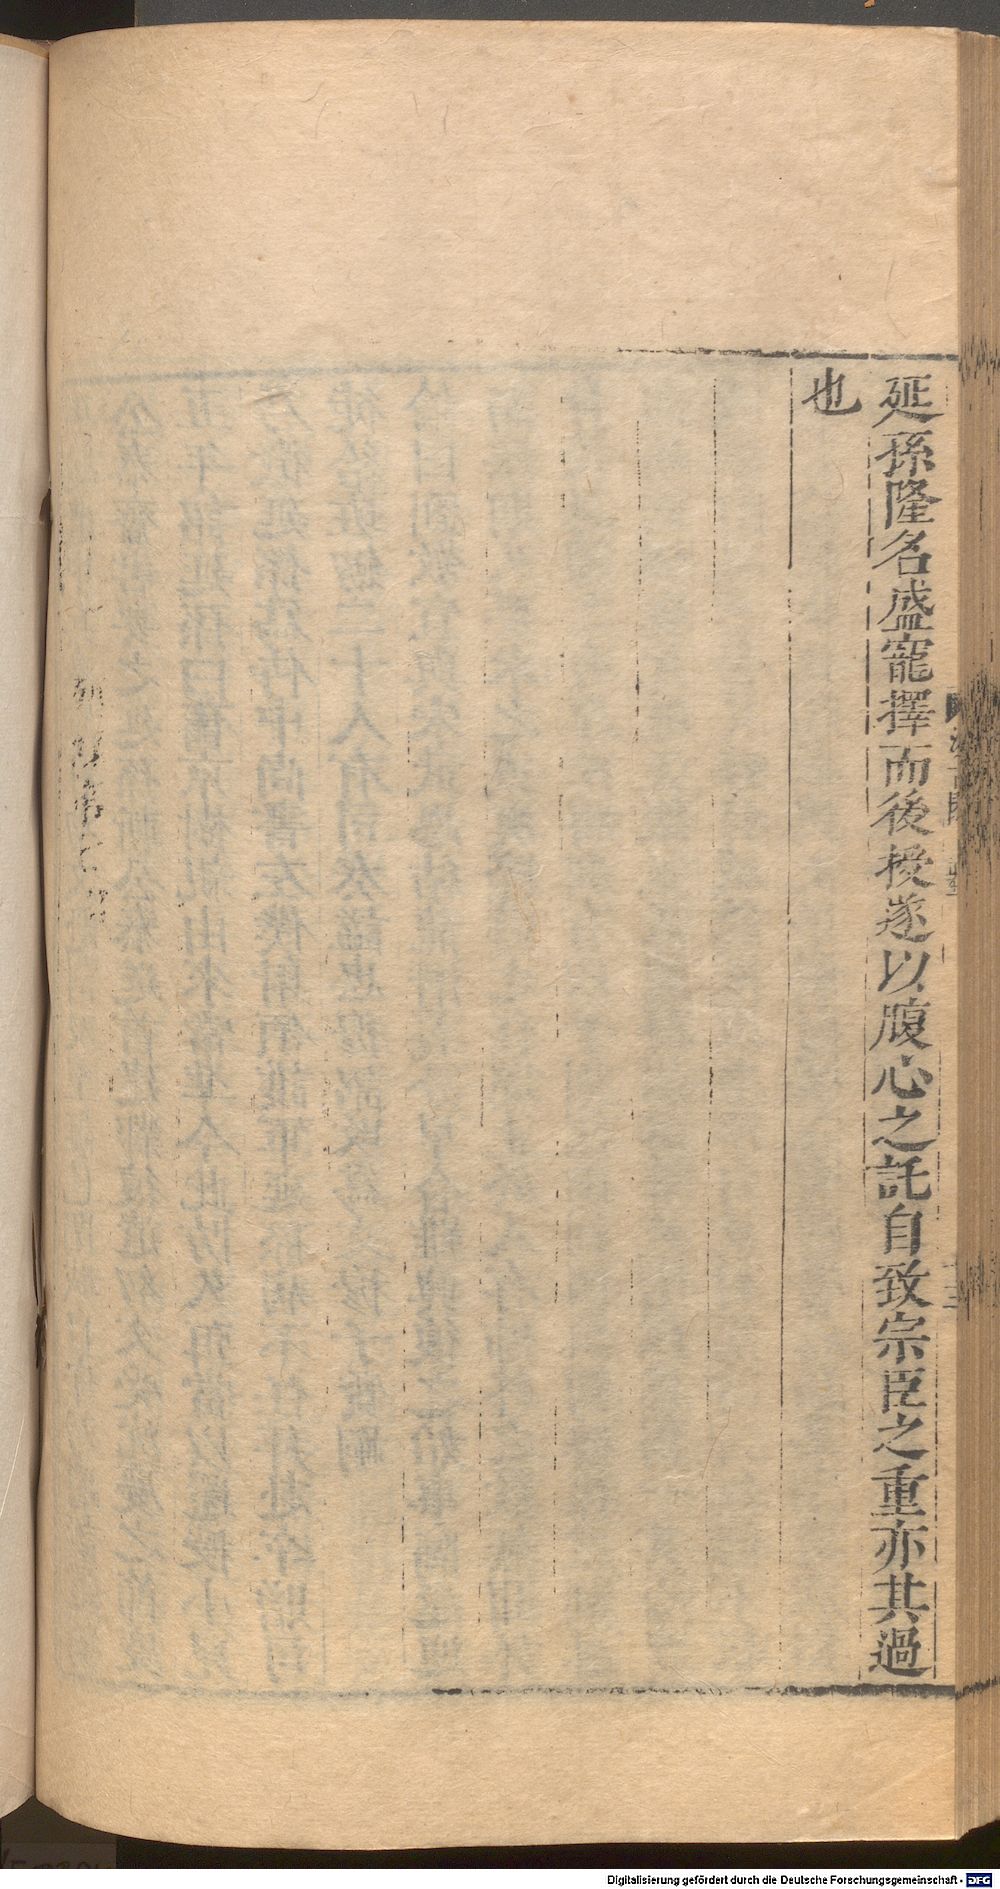 延孫隆名盛寵擇而後授遂以腹心之託自致宗臣之重亦其過
也
Digitalisierung gefördert durch die Deutsche Forschungsgemeinschaft - DFG